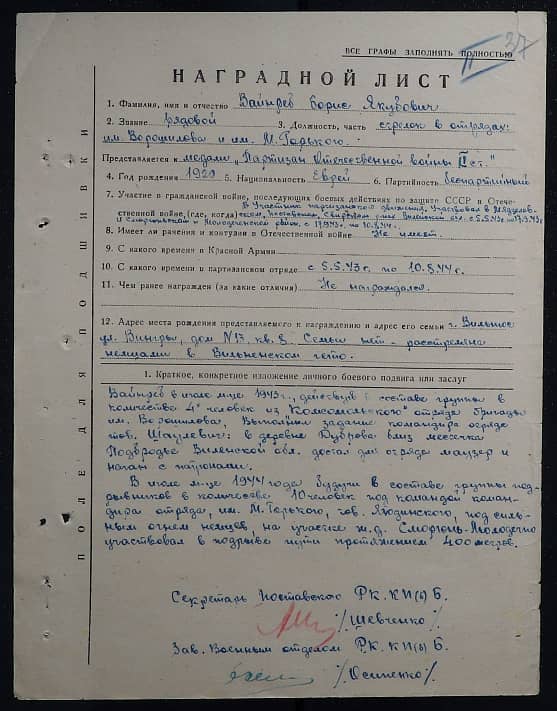 ВСЕ ГРАФЫ ЗАПОЛНЯТЬ ПОЛНОСТЬЮ
37
НАГРАДНОЙ ЛИСТ
1. Фамилия, имя и отчество Вайнрёб Борис Якубович
2. Звание рядовой 3. Должность, часть стрелок в отрядах:
им. Ворошилова и им. М. Горького.
Представляется к медали „Партизан Отечественной войны II ст."
4. Год рождения 1920 5. Национальность Еврей 6. Партийность беспартийный
7. Участие в гражданской войне, последующих боевых действиях по защите СССР и Отече-
ственной войне, (где, когда)
8. Имеет ли ранения и контузии в Отечественной войне Не имеет.
9. С какого времени в Красной Армии
10. С какого времени в партизанском отряде с 5.5.43г. по 10.8.44г.
11. Чем ранее награжден (за какие отличия) Не награждался.
12. Адрес места рождения представляемого к награждению и адрес его семьи г. Вильнюс
ул. Вингры, дом №13, кв. 8. Семьи нет - расстреляна
немцами в Вильненском гетто.
1. Краткое, конкретное изложение личного боевого подвига или заслуг
Вайнрёб в июле м-це 1943г., действуя в составе группы в
количестве 4х человек из „Комсомольского" отряда бригады
им. Ворошилова, выполнил задание командира отряда
тов. Шаулевич: в деревне Дуброва близ месечка
Подбродье Виленской обл. достал для отряда маузер и
наган с патронами.
В июле м-це 1944 года будучи в составе группы под-
рывников в количестве 10 человек под командой коман-
дира отряда, им. М. Горького, тов. Ягодинского, под силь-
ным огнем немцев, на участке ж.д. Сморгонь-Молодечно
участвовал в подрыве пути протяжением 400 метров.
Секретарь Поставского РК. КП(б) Б.
/Шевченко/
Зав. Военным отделом РК. КП(б) Б.
/Осипенко/
ПОЛЕ ДЛЯ ПОДШИВКИ